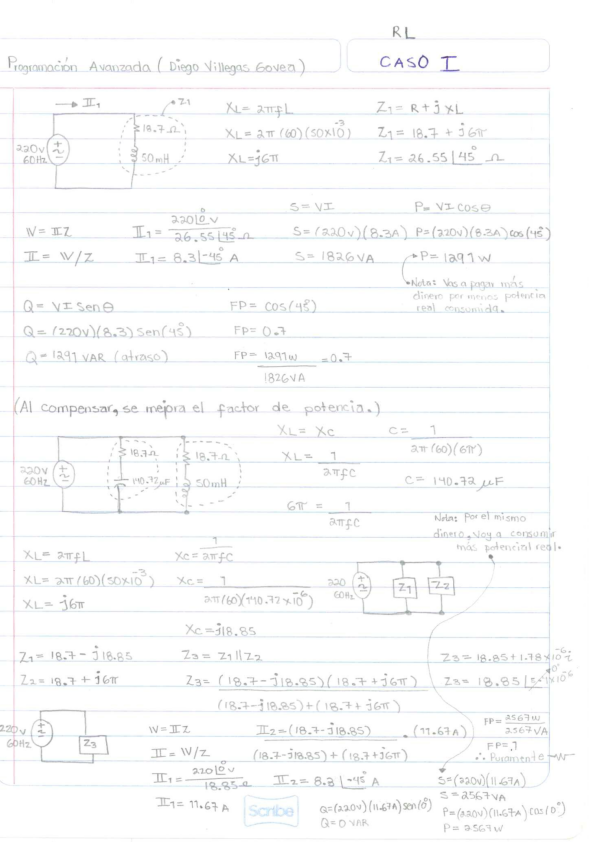 RL
Programación Avanzada (Diego Villegas Govea)
CASO I
→ II₁
Z1
220V 60Hz
18.7 Ω
50mH
XL = 2πfL
XL = 2π(60)(50x10⁻³)
XL = j6π
Z1 = R + j XL
Z1 = 18.7 + j6π
Z1 = 26.55 ∠45° Ω
W = II Z
II = W/Z
II₁ = 220∠0° V / 26.55∠45° Ω
II₁ = 8.3∠-45° A
S = VI
S = (220v)(8.3A)
S = 1826 VA
P = VI COSθ
P = (220v)(8.3A) cos(45°)
P = 1291 W
Nota: Vas a pagar más
dinero por menos potencia
real consumida.
Q = VI Senθ
Q = (220v)(8.3) Sen(45°)
Q = 1291 VAR (atraso)
FP = COS(45°)
FP = 0.7
FP = 1291w / 1826VA = 0.7
(Al compensar, se mejora el factor de potencia.)
220V 60Hz
18.7Ω
140.72µF
18.7Ω
50mH
XL = Xc
XL = 1 / 2πfC
6π = 1 / 2πfC
C = 1 / 2π(60)(6π)
C = 140.72 µF
Nota: Por el mismo
dinero, voy a consumir
más potencial real.
XL = 2πfL
XL = 2π(60)(50x10⁻³)
XL = j6π
Xc = 1 / 2πfC
Xc = 1 / 2π(60)(140.72x10⁻⁶)
Xc = j18.85
220 60Hz
Z1
Z2
Z1 = 18.7 - j18.85
Z2 = 18.7 + j6π
Z3 = Z1 || Z2
Z3 = (18.7-j18.85)(18.7+j6π) / (18.7-j18.85)+(18.7+j6π)
Z3 = 18.85+1.78x10⁻⁶i
Z3 = 18.85
220V 60Hz
Z3
W = II Z
II = W/Z
II₁ = 220∠0° V / 18.85 Ω
II₁ = 11.67 A
II₂ = (18.7-j18.85) / (18.7-j18.85)+(18.7+j6π) · (11.67A)
II₂ = 8.3 ∠-45° A
Q = (220v)(11.67A) sen(0°)
Q = 0 VAR
FP = 2567W / 2567VA
FP = 1
∴ Puramente
S = (220v)(11.67A)
S = 2567VA
P = (220v)(11.67A) cos(0°)
P = 2567W
Scribe